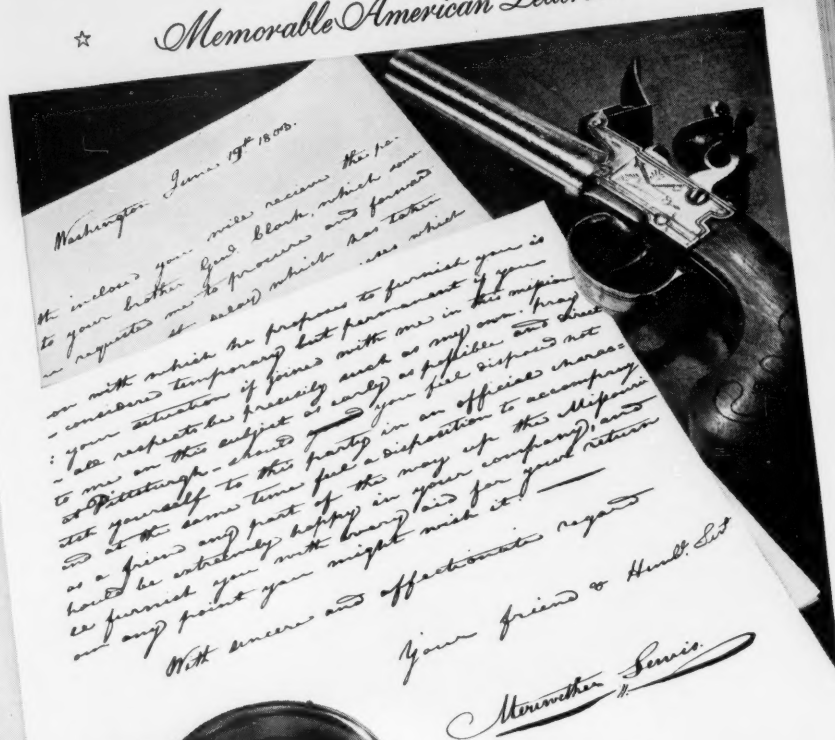 Memorable American
Washington June 19th 1803.
inclosed you will recieve the pa-
to your brother Genl Clark, which som
requested me to procure and forward
delay which has taken
ses which
on with which he proposes to furnish you is
considered temporary but permanent if you
your situation if joined with me in this mission
all respects be precisely such as my own. pray
to me on this subject as early as possible and direct
at Pittsburgh - should you feel disposed not
attach yourself to this party in an official charac=
and at the same time feel a disposition to accompany
as a frien any part of the way up the Missouri
should be extremely happy in your company, and
furnish you with every aid for your return
any point you might wish it.
With sincere and affectionate regard
Your friend & Humbl. Sert
Meriwether Lewis.